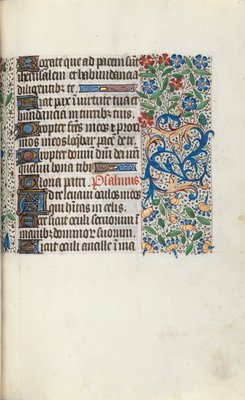 Rogate que ad pacem sunt
iherusalem et habundancia
diligentibus te.
Fiat pax in virtute tua et
habundancia in turribus tuis.
Propter fratres meos et proxi
mos meos loquebar pacem de te.
Propter domum domini dei nri
quesivi bona tibi
Gloria patri. Psalmus
Ad te levavi oculos meos
qui habitas in celis.
Ecce sicut oculi servorum in
manibus dominorum suorum.
Sicut oculi ancille in ma